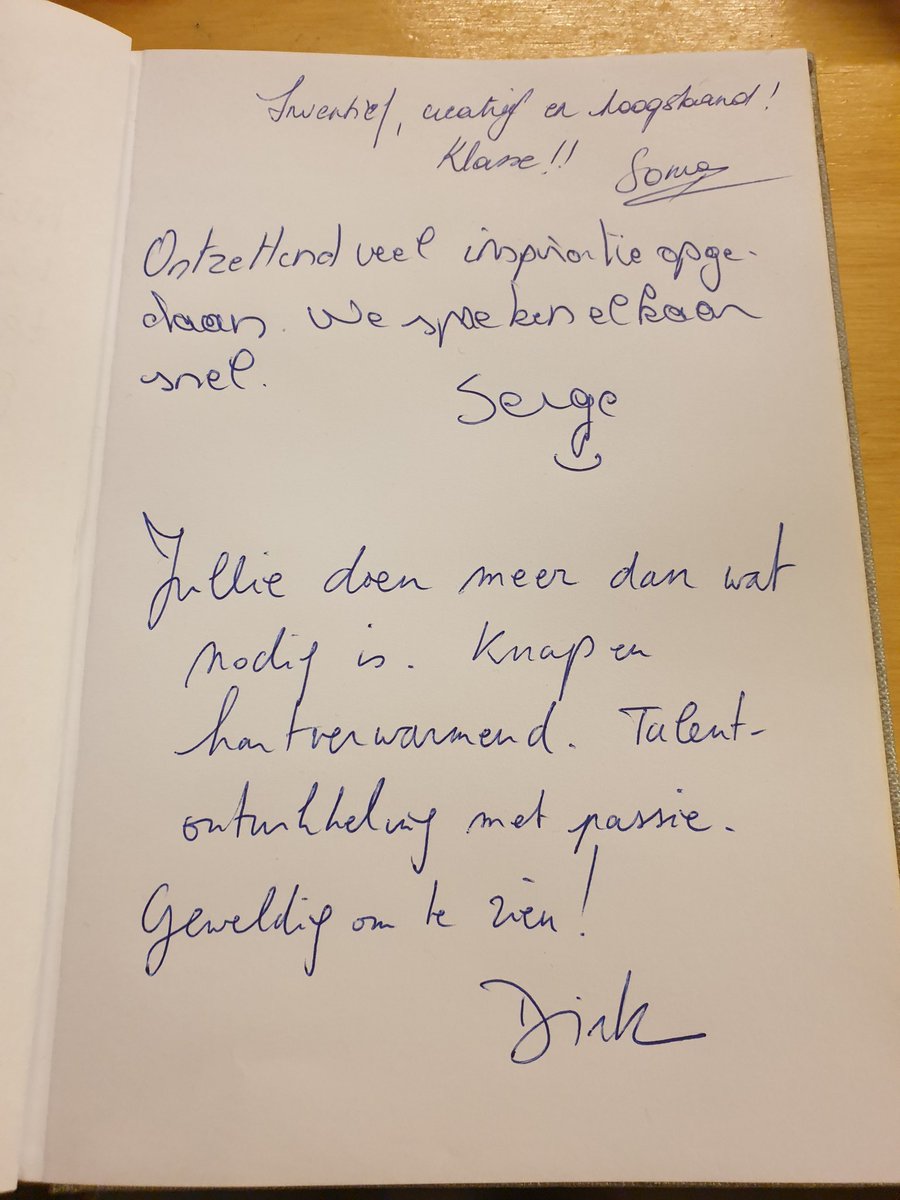 Inventief, creatief en hoogstaand!
Klasse!!
Ontzettend veel inspiratie opge-
daan. We spreken elkaar
snel.
Serge
Jullie doen meer dan wat
nodig is. Knap en
hartverwarmend. Talent-
ontwikkeling met passie.
Geweldig om te zien!
Dirk